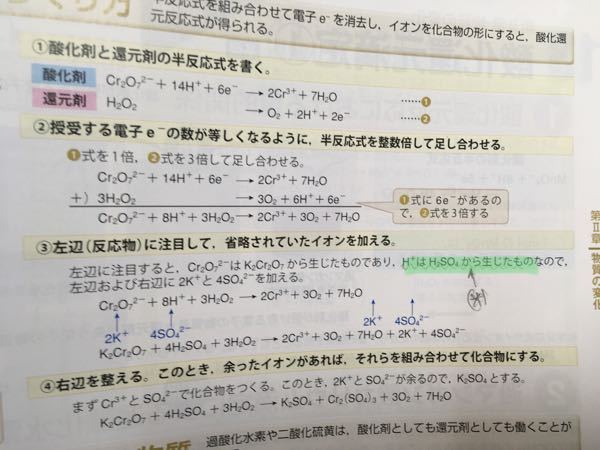 半反応式を組み合わせて電子e⁻を消去し、イオンを化合物の形にすると、酸化還
元反応式が得られる。
①酸化剤と還元剤の半反応式を書く。
酸化剤 Cr₂O₇²⁻ + 14H⁺ + 6e⁻ → 2Cr³⁺ + 7H₂O ……❶
還元剤 H₂O₂ → O₂ + 2H⁺ + 2e⁻ ……❷
②授受する電子e⁻の数が等しくなるように、半反応式を整数倍して足し合わせる。
❶式を1倍、❷式を3倍して足し合わせる。
Cr₂O₇²⁻ + 14H⁺ + 6e⁻ → 2Cr³⁺ + 7H₂O
+) 3H₂O₂ → 3O₂ + 6H⁺ + 6e⁻
Cr₂O₇²⁻ + 8H⁺ + 3H₂O₂ → 2Cr³⁺ + 3O₂ + 7H₂O
❶式に6e⁻があるの
で、❷式を3倍する
③左辺(反応物)に注目して、省略されていたイオンを加える。
左辺に注目すると、Cr₂O₇²⁻はK₂Cr₂O₇から生じたものであり、H⁺はH₂SO₄から生じたものなので、
左辺および右辺に2K⁺と4SO₄²⁻を加える。
Cr₂O₇²⁻ + 8H⁺ + 3H₂O₂ → 2Cr³⁺ + 3O₂ + 7H₂O
2K⁺ 4SO₄²⁻ 2K⁺ 4SO₄²⁻
K₂Cr₂O₇ + 4H₂SO₄ + 3H₂O₂ → 2Cr³⁺ + 3O₂ + 7H₂O + 2K⁺ + 4SO₄²⁻
④右辺を整える。このとき、余ったイオンがあれば、それらを組み合わせて化合物にする。
まずCr³⁺とSO₄²⁻で化合物をつくる。このとき、2K⁺とSO₄²⁻が余るので、K₂SO₄とする。
K₂Cr₂O₇ + 4H₂SO₄ + 3H₂O₂ → K₂SO₄ + Cr₂(SO₄)₃ + 3O₂ + 7H₂O
過酸化水素や二酸化硫黄は、酸化剤としても還元剤としても働くことが
第Ⅱ章 物質の変化